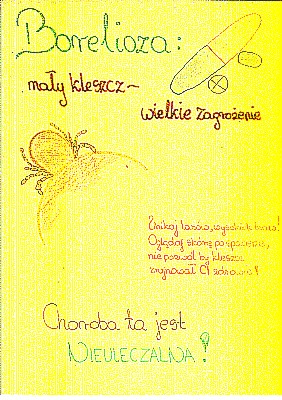 Borelioza:
mały kleszcz –
wielkie zagrożenie
Unikaj lasów, wysokich traw!
Oglądaj skórę po spacerze,
nie pozwól by kleszcz
zajmował Ci zdrowie!
Choroba ta jest
NIEULECZALNA!